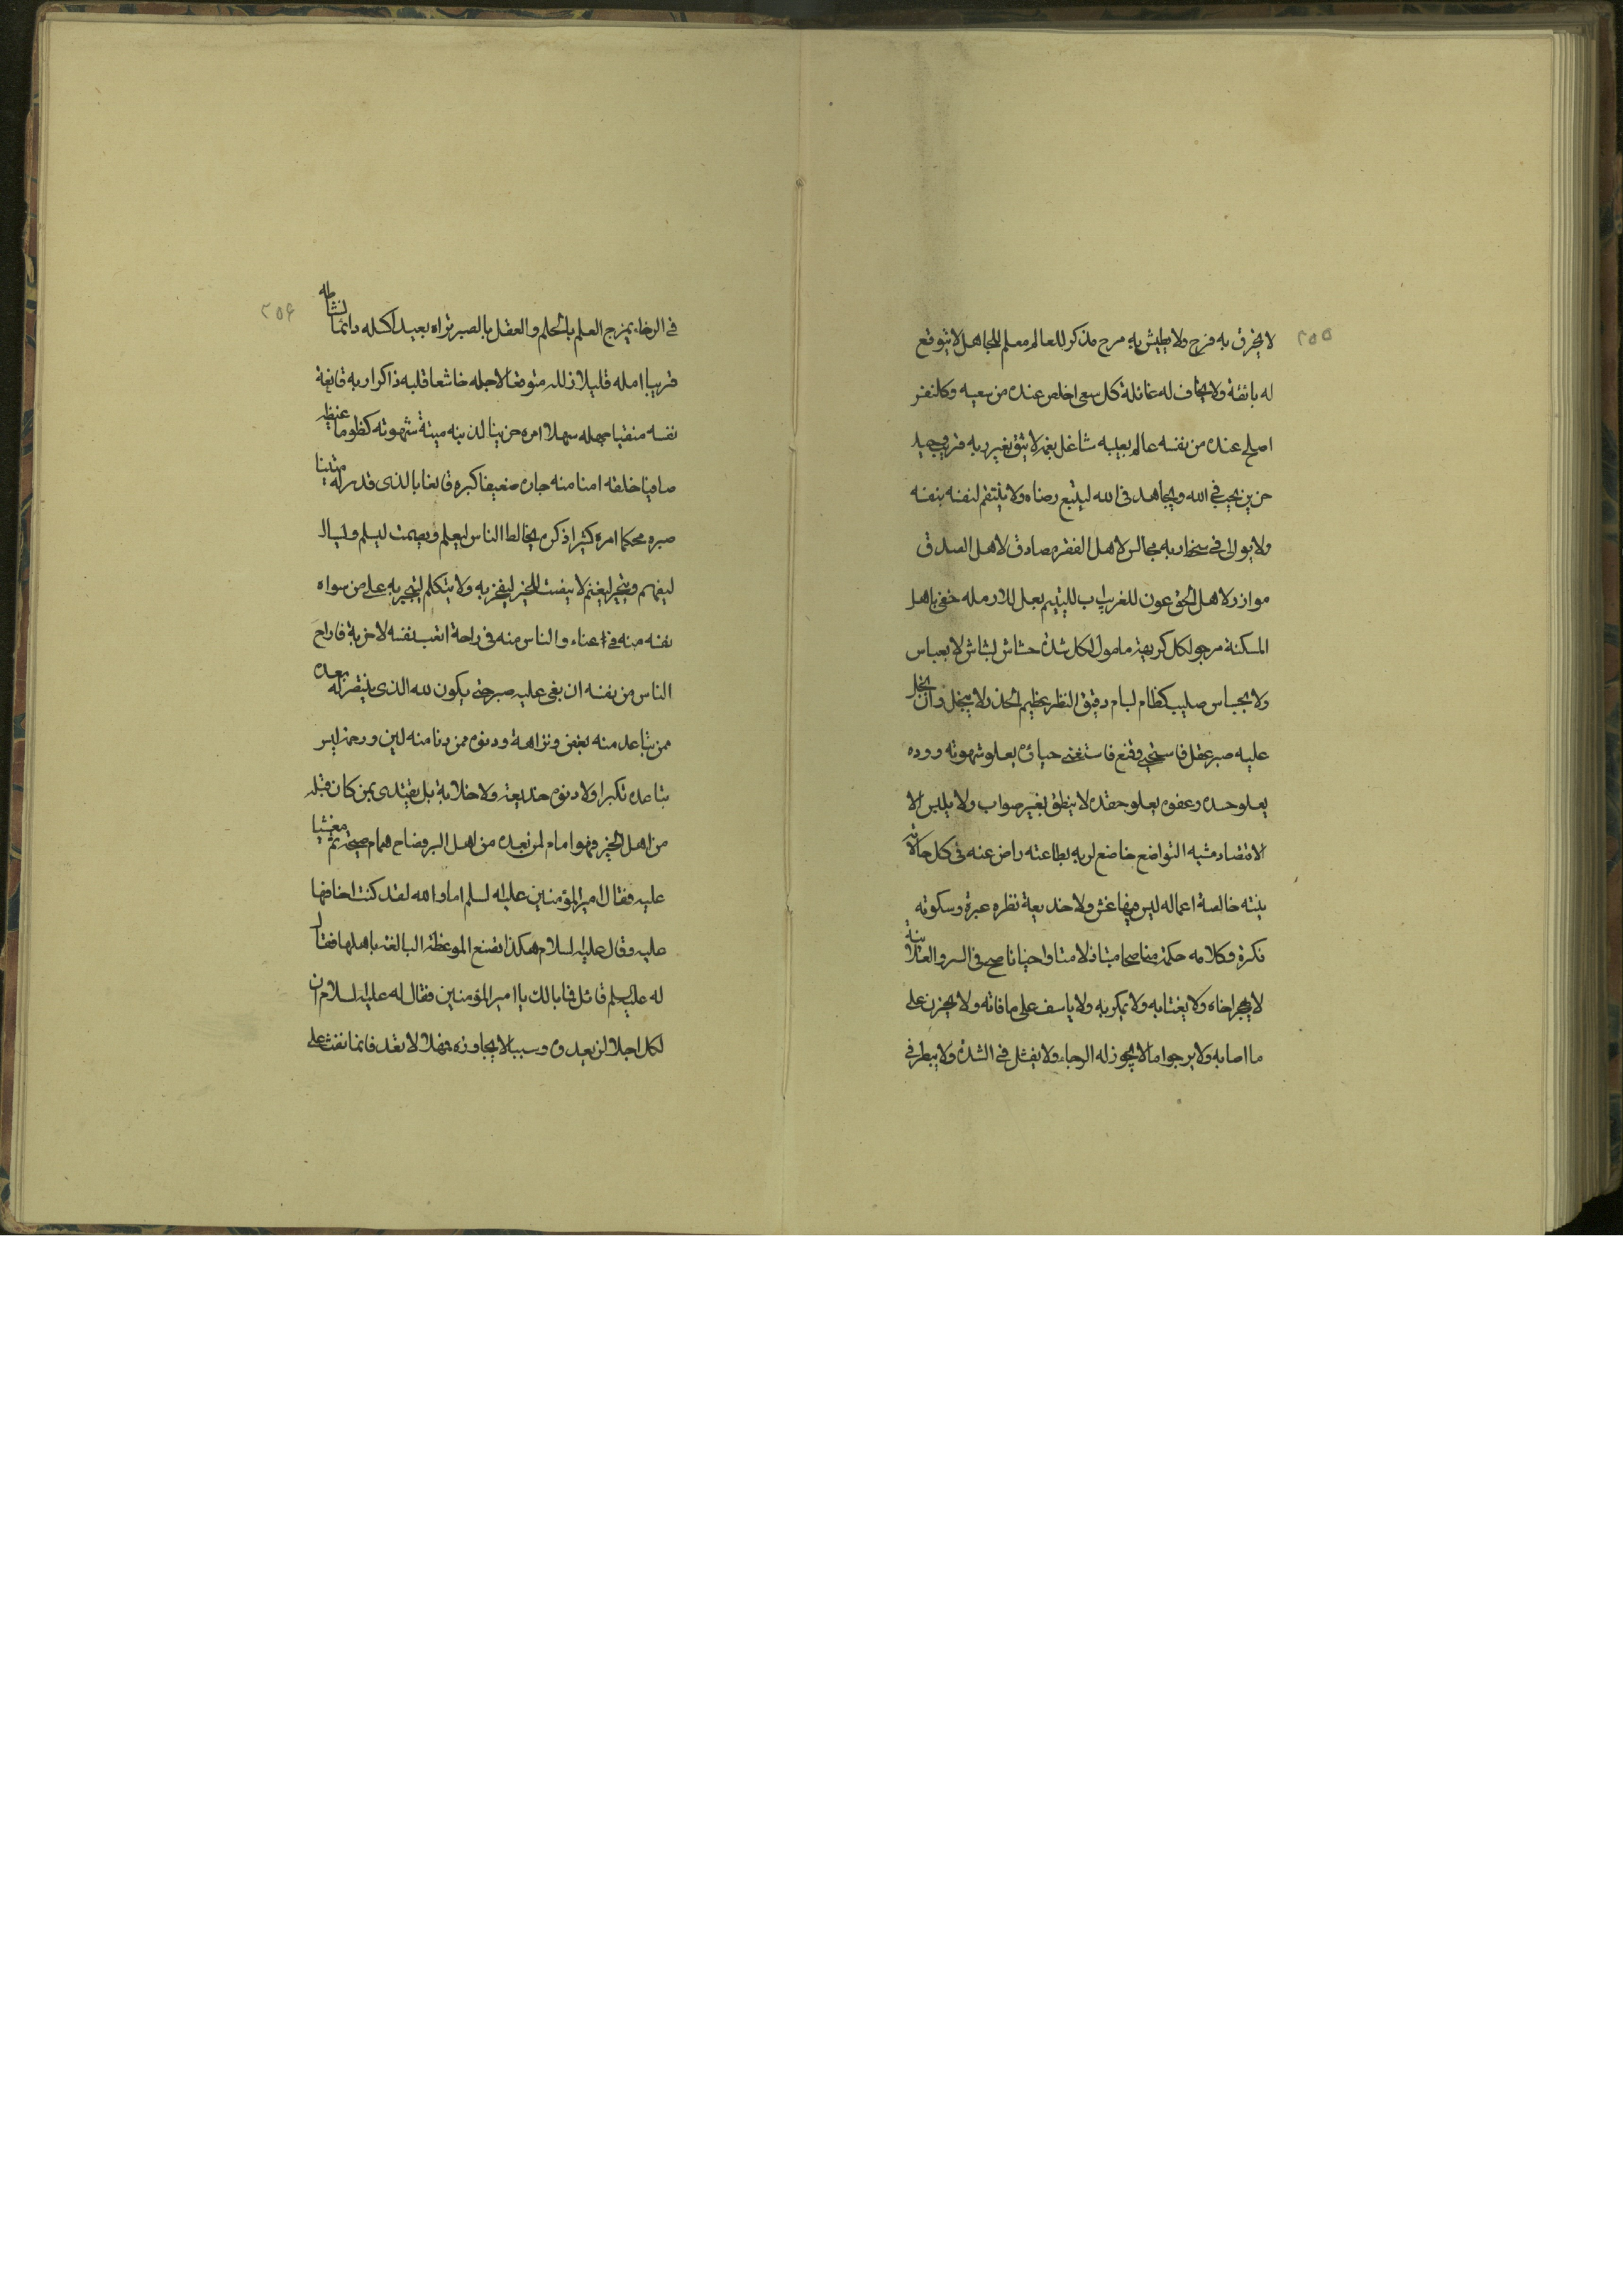 ٢٥٥
لا يخرق به فرح ولا يطيش به مرح مذكر للعالم معلم للجاهل لا يتوقع
له بائقة ولا يخاف له غائلة كل سعى اخلص عنده من سعيه وكل نفس
اصلح عنده من نفسه عالم بعيبه شاغل بغمه لا يثق بغير ربه قريب وحيد
حزين يحب في الله ويجاهد في الله ليتبع رضاه ولا ينتقم لنفسه بنفسه
ولا يوالى في سخط ربه مجالس لاهل الفقر مصادق لاهل الصدق
موازر لاهل الحق عون للغريب اب لليتيم بعل للارملة حفى باهل
المسكنة مرجو لكل كريهة مامول لكل شدة هشاش بشاش لا بعباس
ولا بجباس صليب كظام بسام دقيق النظر عظيم الحذر لا يبخل وان بخل
عليه صبر عقل فاستحيى وقنع فاستغنى حياؤه يعلو شهوته ووده
يعلو حسده وعفوه يعلو حقده لا ينطق بغير صواب ولا يلبس الا
الاقتصاد مشيه التواضع خاضع لربه بطاعته راض عنه في كل حالاته
نيته خالصة اعماله ليس فيها غش ولا خديعة نظره عبرة وسكوته
فكرة وكلامه حكمة مناصحا متباذلا متواخيا ناصح في السر والعلانية
لا يهجر اخاه ولا يغتابه ولا يمكر به ولا ياسف على ما فاته ولا يحزن على
ما اصابه ولا يرجوا ما لا يجوز له الرجاء ولا يفشل في الشدة ولا يبطر في
٢٥٦
في الرخاء يمزج العلم بالحلم والعقل بالصبر تراه بعيدا كسله دائما نشاطه
قريبا امله قليلا زلله متوقعا لاجله خاشعا قلبه ذاكرا ربه قانعة
نفسه منفيا جهله سهلا امره حزينا لذنبه ميتة شهوته كظوما غيظه
صافيا خلقه امنا منه جاره ضعيفا كبره قانعا بالذى قدر له متينا
صبره محكما امره كثيرا ذكره يخالط الناس ليعلم ويصمت ليسلم ويسال
ليفهم ويتجر ليغنم لا ينصت للخير ليفخر به ولا يتكلم ليتجبر به على من سواه
نفسه منه في عناء والناس منه في راحة اتعب نفسه لاخرته فاراح
الناس من نفسه ان بغى عليه صبر حتى يكون الله الذى ينتصر له بعده
ممن تباعد منه بغض ونزاهة ودنوه ممن دنا منه لين ورحمة ليس
تباعده تكبرا ولا دنوه خديعة ولا خلابة بل يقتدى بمن كان قبله
من اهل الخير فهو امام لمن بعده من اهل البر فصاح همام صيحة ثم مغشيا
عليه فقال امير المؤمنين عليه السلم اما والله لقد كنت اخافها
عليه وقال عليه السلام هكذا تصنع الموعظة البالغة باهلها فقال
له عليه السلم قائل فما بالك يا امير المؤمنين فقال له عليه السلام ان
لكل اجلا لن يعدوه وسببا لا يجاوزه فمهلا لا تعد فانما نفث على